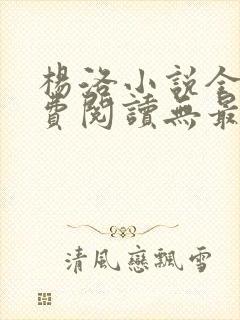 楊洛小說全
費閱讀無最
清風戀飄雪